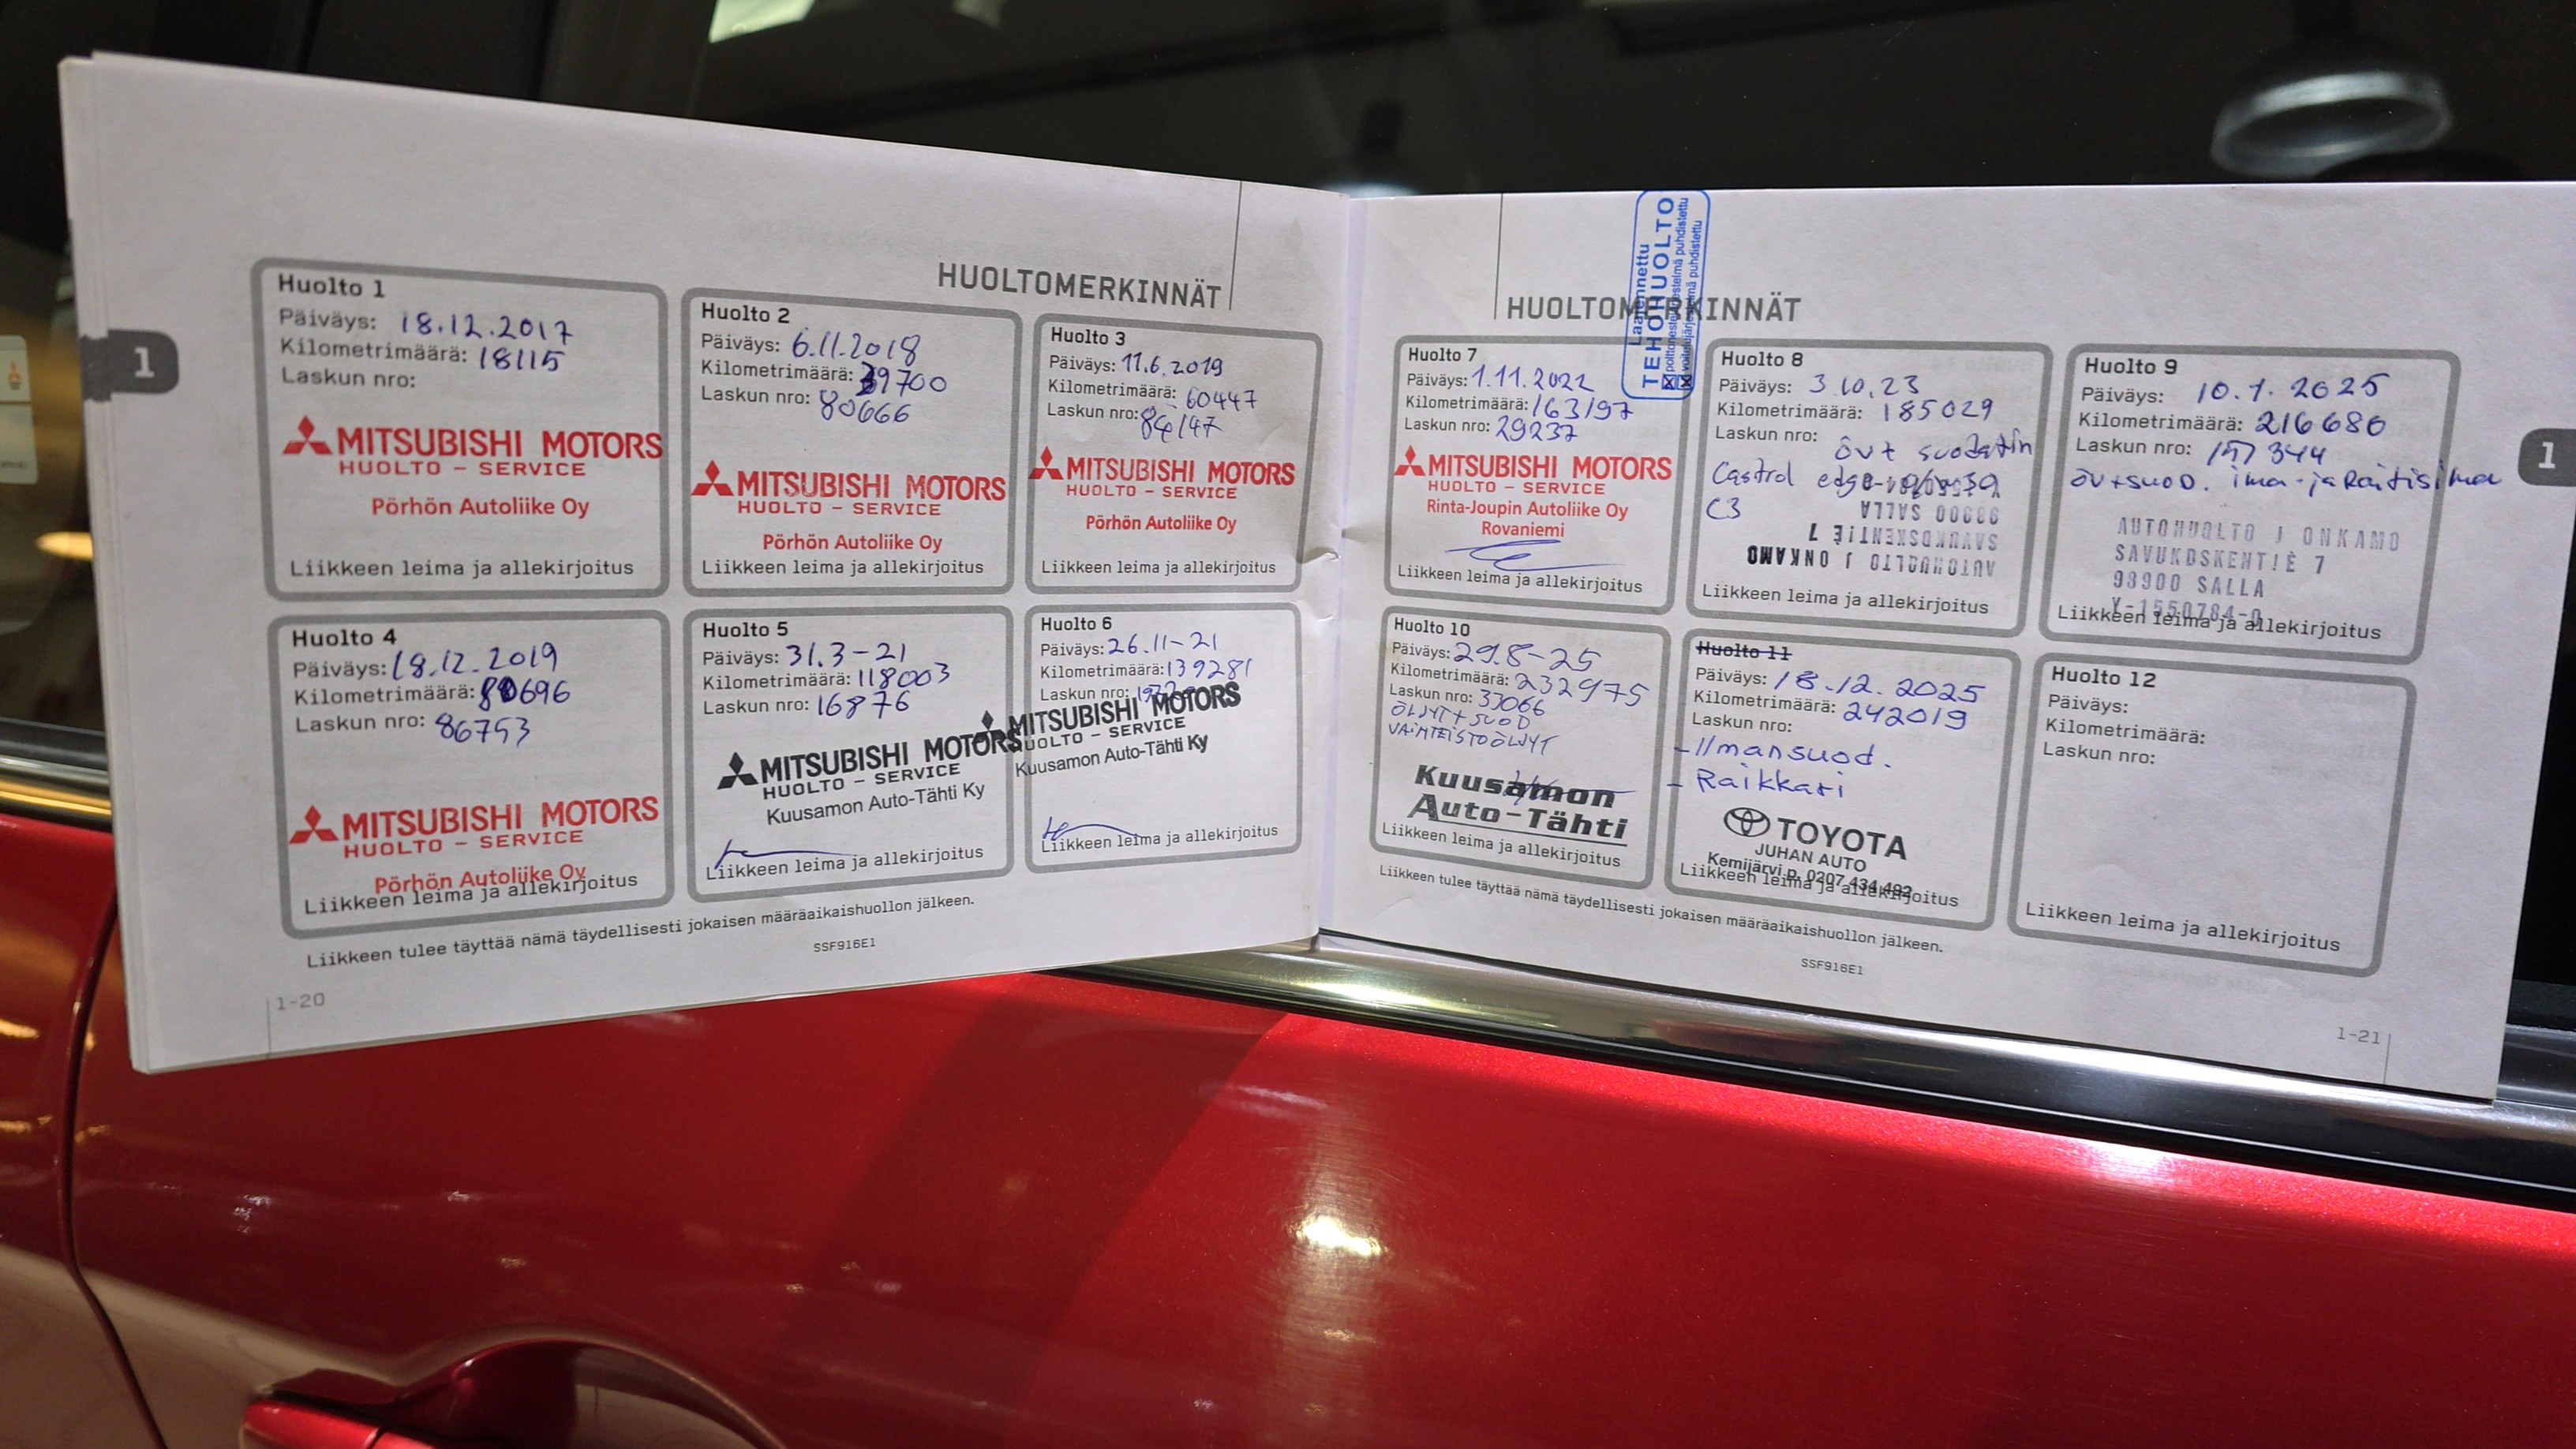 1
HUOLTOMERKINNÄT
Huolto 1
Päiväys: 18.12.2017
Kilometrimäärä: 18115
Laskun nro:
MITSUBISHI MOTORS
HUOLTO - SERVICE
Pörhön Autoliike Oy
Liikkeen leima ja allekirjoitus
Huolto 2
Päiväys: 6.11.2018
Kilometrimäärä: 39700
Laskun nro: 80666
MITSUBISHI MOTORS
HUOLTO - SERVICE
Pörhön Autoliike Oy
Liikkeen leima ja allekirjoitus
Huolto 3
Päiväys: 11.6.2019
Kilometrimäärä: 60447
Laskun nro: 84147
MITSUBISHI MOTORS
HUOLTO - SERVICE
Pörhön Autoliike Oy
Liikkeen leima ja allekirjoitus
Huolto 4
Päiväys: 18.12.2019
Kilometrimäärä: 80696
Laskun nro: 86753
MITSUBISHI MOTORS
HUOLTO - SERVICE
Pörhön Autoliike Oy
Liikkeen leima ja allekirjoitus
Huolto 5
Päiväys: 31.3-21
Kilometrimäärä: 118003
Laskun nro: 16876
MITSUBISHI MOTORS
HUOLTO - SERVICE
Kuusamon Auto-Tähti Ky
Liikkeen leima ja allekirjoitus
Huolto 6
Päiväys: 26.11-21
Kilometrimäärä: 139281
Laskun nro:
MITSUBISHI MOTORS
HUOLTO - SERVICE
Kuusamon Auto-Tähti Ky
Liikkeen leima ja allekirjoitus
Liikkeen tulee täyttää nämä täydellisesti jokaisen määräaikaishuollon jälkeen.
SSF916E1
1-20
HUOLTOMERKINNÄT
Laajennettu
TEHOHUOLTO
polttonestejärjestelmä puhdistettu
voitelujärjestelmä puhdistettu
Huolto 7
Päiväys: 1.11.2022
Kilometrimäärä: 163197
Laskun nro: 29237
MITSUBISHI MOTORS
HUOLTO - SERVICE
Rinta-Joupin Autoliike Oy
Rovaniemi
Liikkeen leima ja allekirjoitus
Huolto 8
Päiväys: 3.10.23
Kilometrimäärä: 185029
Laskun nro:
öv+ suodatin
Castrol edge
C3
98900 SALLA
SAVUKOSKENTIE 7
AUTOHUOLTO J ONKAMO
Liikkeen leima ja allekirjoitus
Huolto 9
Päiväys: 10.1.2025
Kilometrimäärä: 216680
Laskun nro: 157344
öv+suod. ima-ja Raitisilma
AUTOHUOLTO J ONKAMO
SAVUKOSKENTIE 7
98900 SALLA
Y-1550784-0
Liikkeen leima ja allekirjoitus
Huolto 10
Päiväys: 29.8-25
Kilometrimäärä: 232975
Laskun nro: 33066
ÖLJYT+SUOD
VAIHTEISTOÖLJYT
Kuusamon
Auto-Tähti
Liikkeen leima ja allekirjoitus
Huolto 11
Päiväys: 18.12.2025
Kilometrimäärä: 242019
Laskun nro:
-Ilmansuod.
- Raikkari
TOYOTA
JUHAN AUTO
Kemijärvi p. 0207 434 492
Liikkeen leima ja allekirjoitus
Huolto 12
Päiväys:
Kilometrimäärä:
Laskun nro:
Liikkeen leima ja allekirjoitus
Liikkeen tulee täyttää nämä täydellisesti jokaisen määräaikaishuollon jälkeen.
SSF916E1
1-21
1